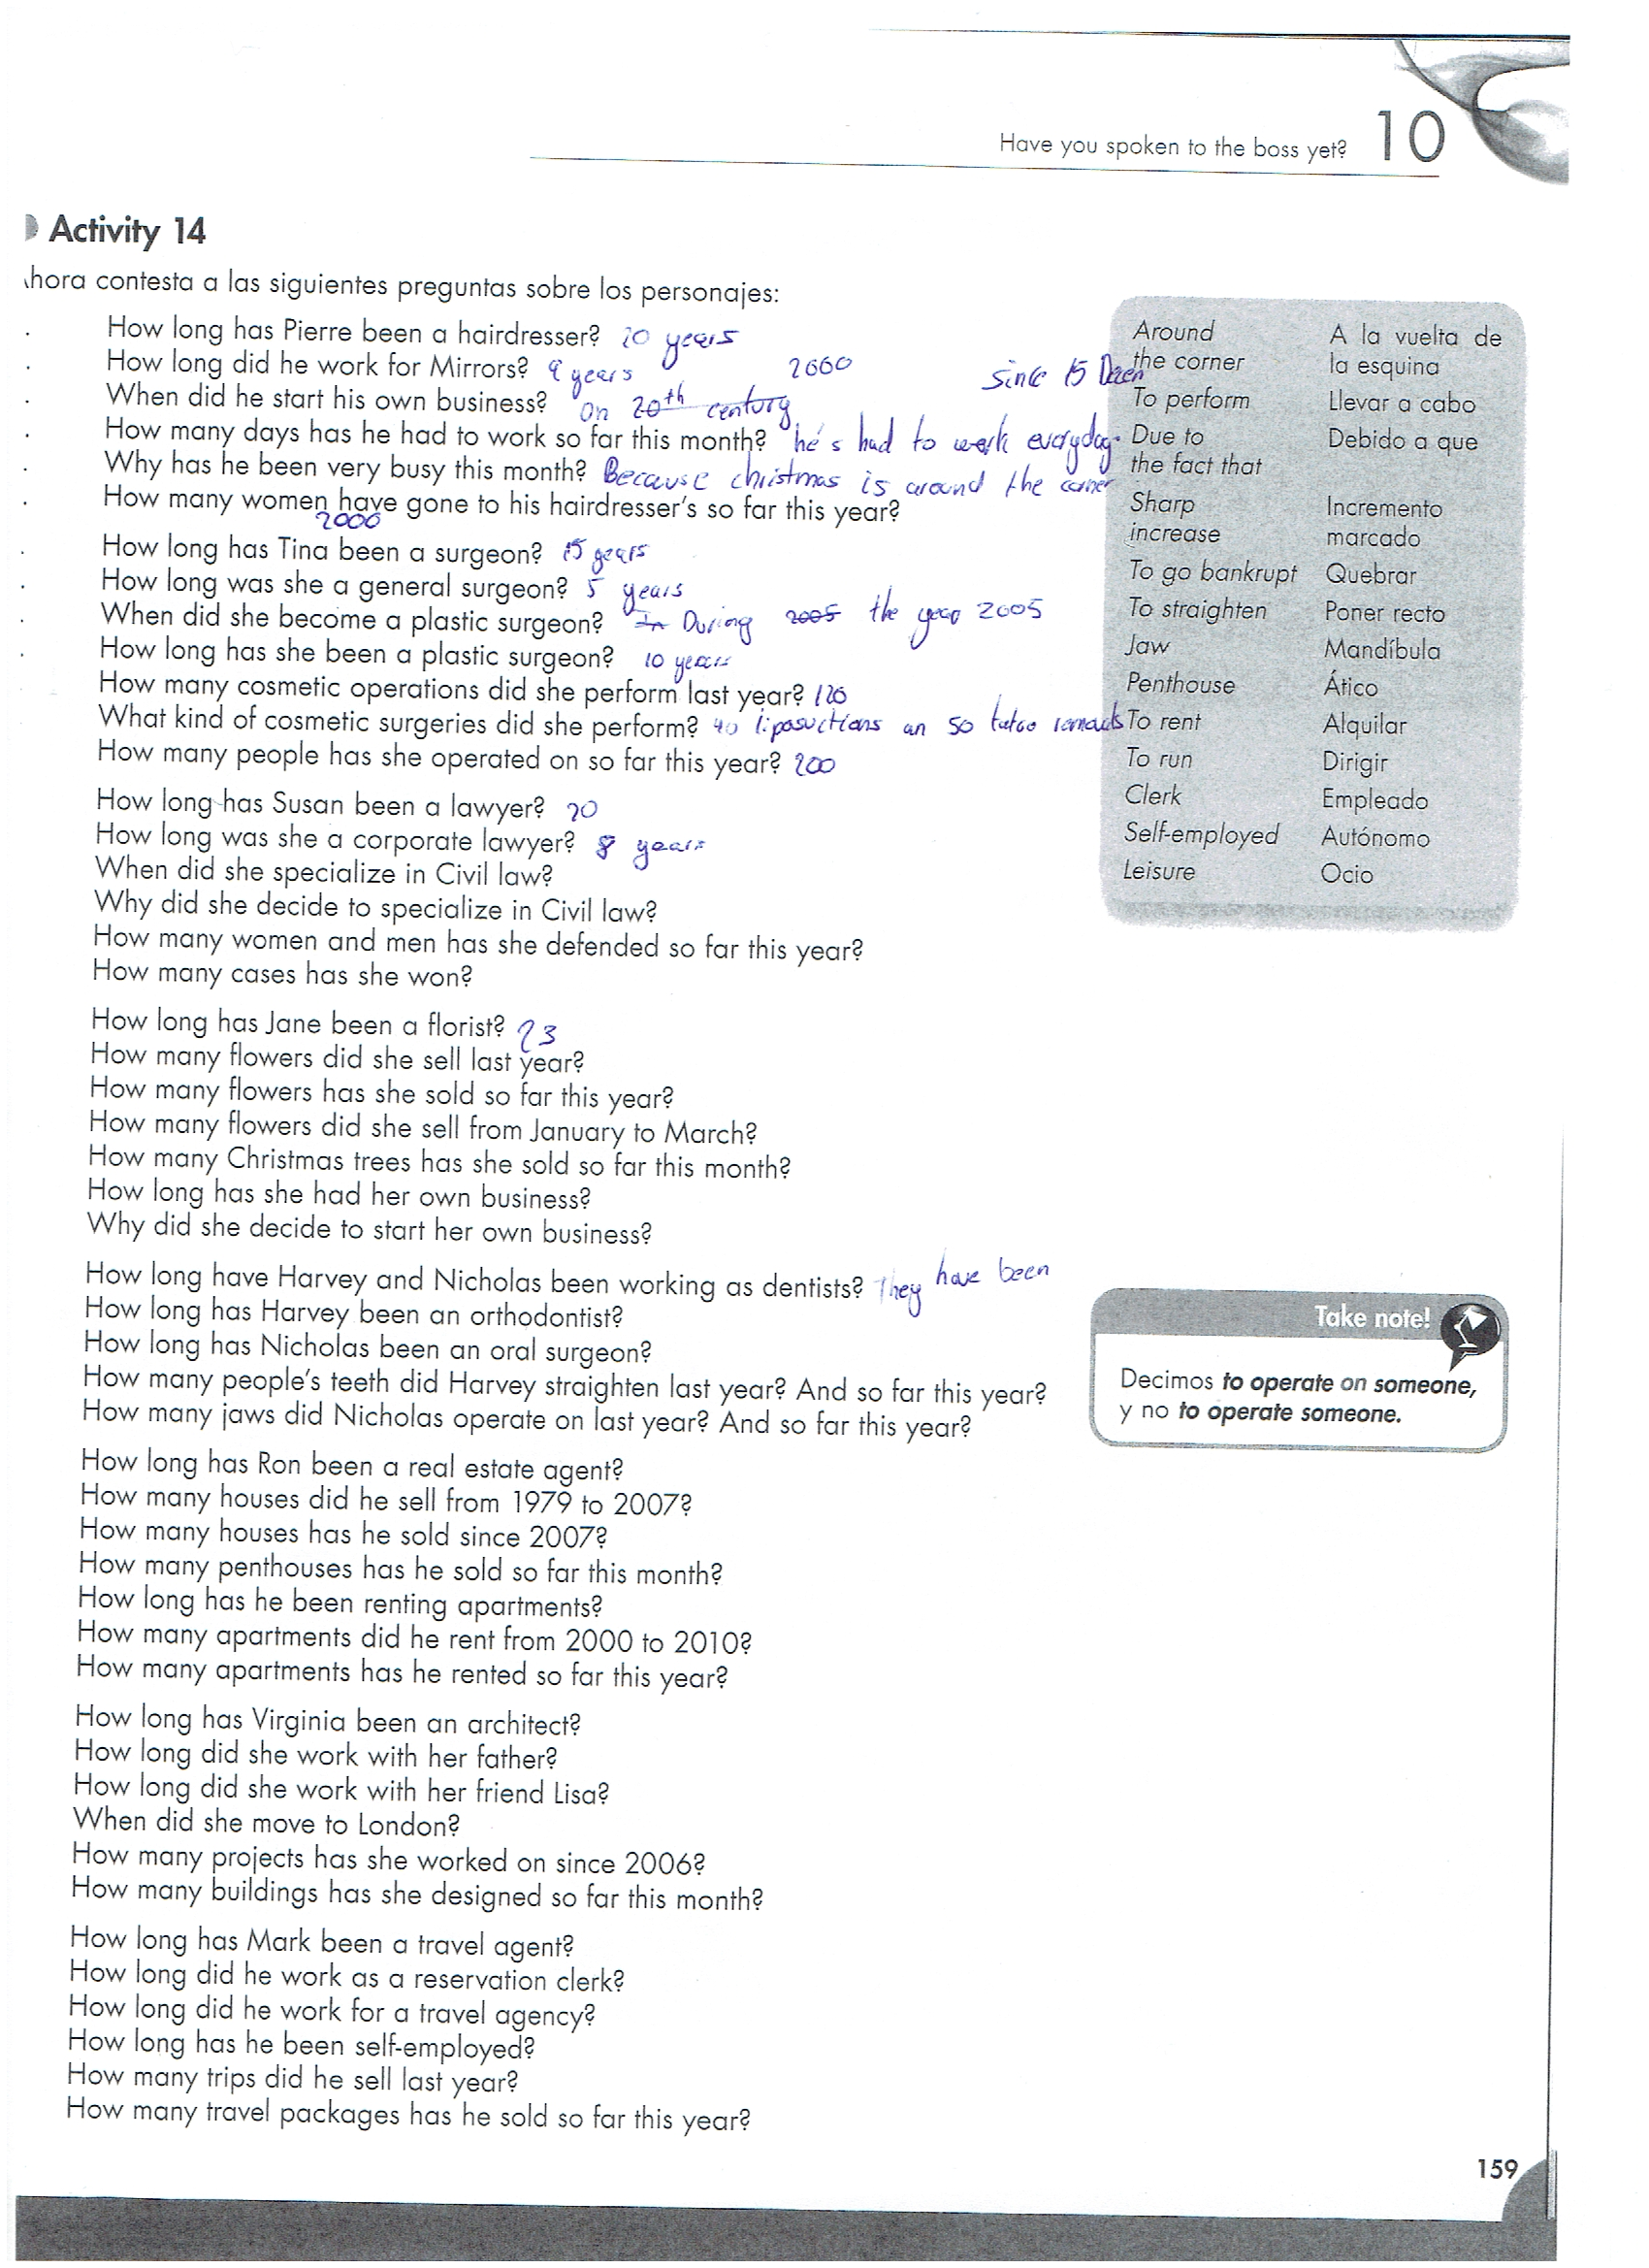 Have you spoken to the boss yet? 10
Activity 14
hora contesta a las siguientes preguntas sobre los personajes:
How long has Pierre been a hairdresser? 20 years
How long did he work for Mirrors? 9 years
When did he start his own business? On 20th century 2000
since 15 Decem
How many days has he had to work so far this month? he's had to work everyday.
Why has he been very busy this month? Because christmas is around the corner
How many women have gone to his hairdresser's so far this year?
2000
How long has Tina been a surgeon? 15 years
How long was she a general surgeon? 5 years
When did she become a plastic surgeon? In During 2005 the year 2005
How long has she been a plastic surgeon? 10 years
How many cosmetic operations did she perform last year? 120
What kind of cosmetic surgeries did she perform? 40 liposuctions an 50 tatoo
How many people has she operated on so far this year? 200
How long has Susan been a lawyer? 20
How long was she a corporate lawyer? 8 years
When did she specialize in Civil law?
Why did she decide to specialize in Civil law?
How many women and men has she defended so far this year?
How many cases has she won?
How long has Jane been a florist? 23
How many flowers did she sell last year?
How many flowers has she sold so far this year?
How many flowers did she sell from January to March?
How many Christmas trees has she sold so far this month?
How long has she had her own business?
Why did she decide to start her own business?
How long have Harvey and Nicholas been working as dentists? They have been
How long has Harvey been an orthodontist?
How long has Nicholas been an oral surgeon?
How many people's teeth did Harvey straighten last year? And so far this year?
How many jaws did Nicholas operate on last year? And so far this year?
How long has Ron been a real estate agent?
How many houses did he sell from 1979 to 2007?
How many houses has he sold since 2007?
How many penthouses has he sold so far this month?
How long has he been renting apartments?
How many apartments did he rent from 2000 to 2010?
How many apartments has he rented so far this year?
How long has Virginia been an architect?
How long did she work with her father?
How long did she work with her friend Lisa?
When did she move to London?
How many projects has she worked on since 2006?
How many buildings has she designed so far this month?
How long has Mark been a travel agent?
How long did he work as a reservation clerk?
How long did he work for a travel agency?
How long has he been self-employed?
How many trips did he sell last year?
How many travel packages has he sold so far this year?
Around A la vuelta de
the corner la esquina
To perform Llevar a cabo
Due to Debido a que
the fact that
Sharp Incremento
increase marcado
To go bankrupt Quebrar
To straighten Poner recto
Jaw Mandíbula
Penthouse Ático
To rent Alquilar
To run Dirigir
Clerk Empleado
Self-employed Autónomo
Leisure Ocio
Take note!
Decimos to operate on someone,
y no to operate someone.
159